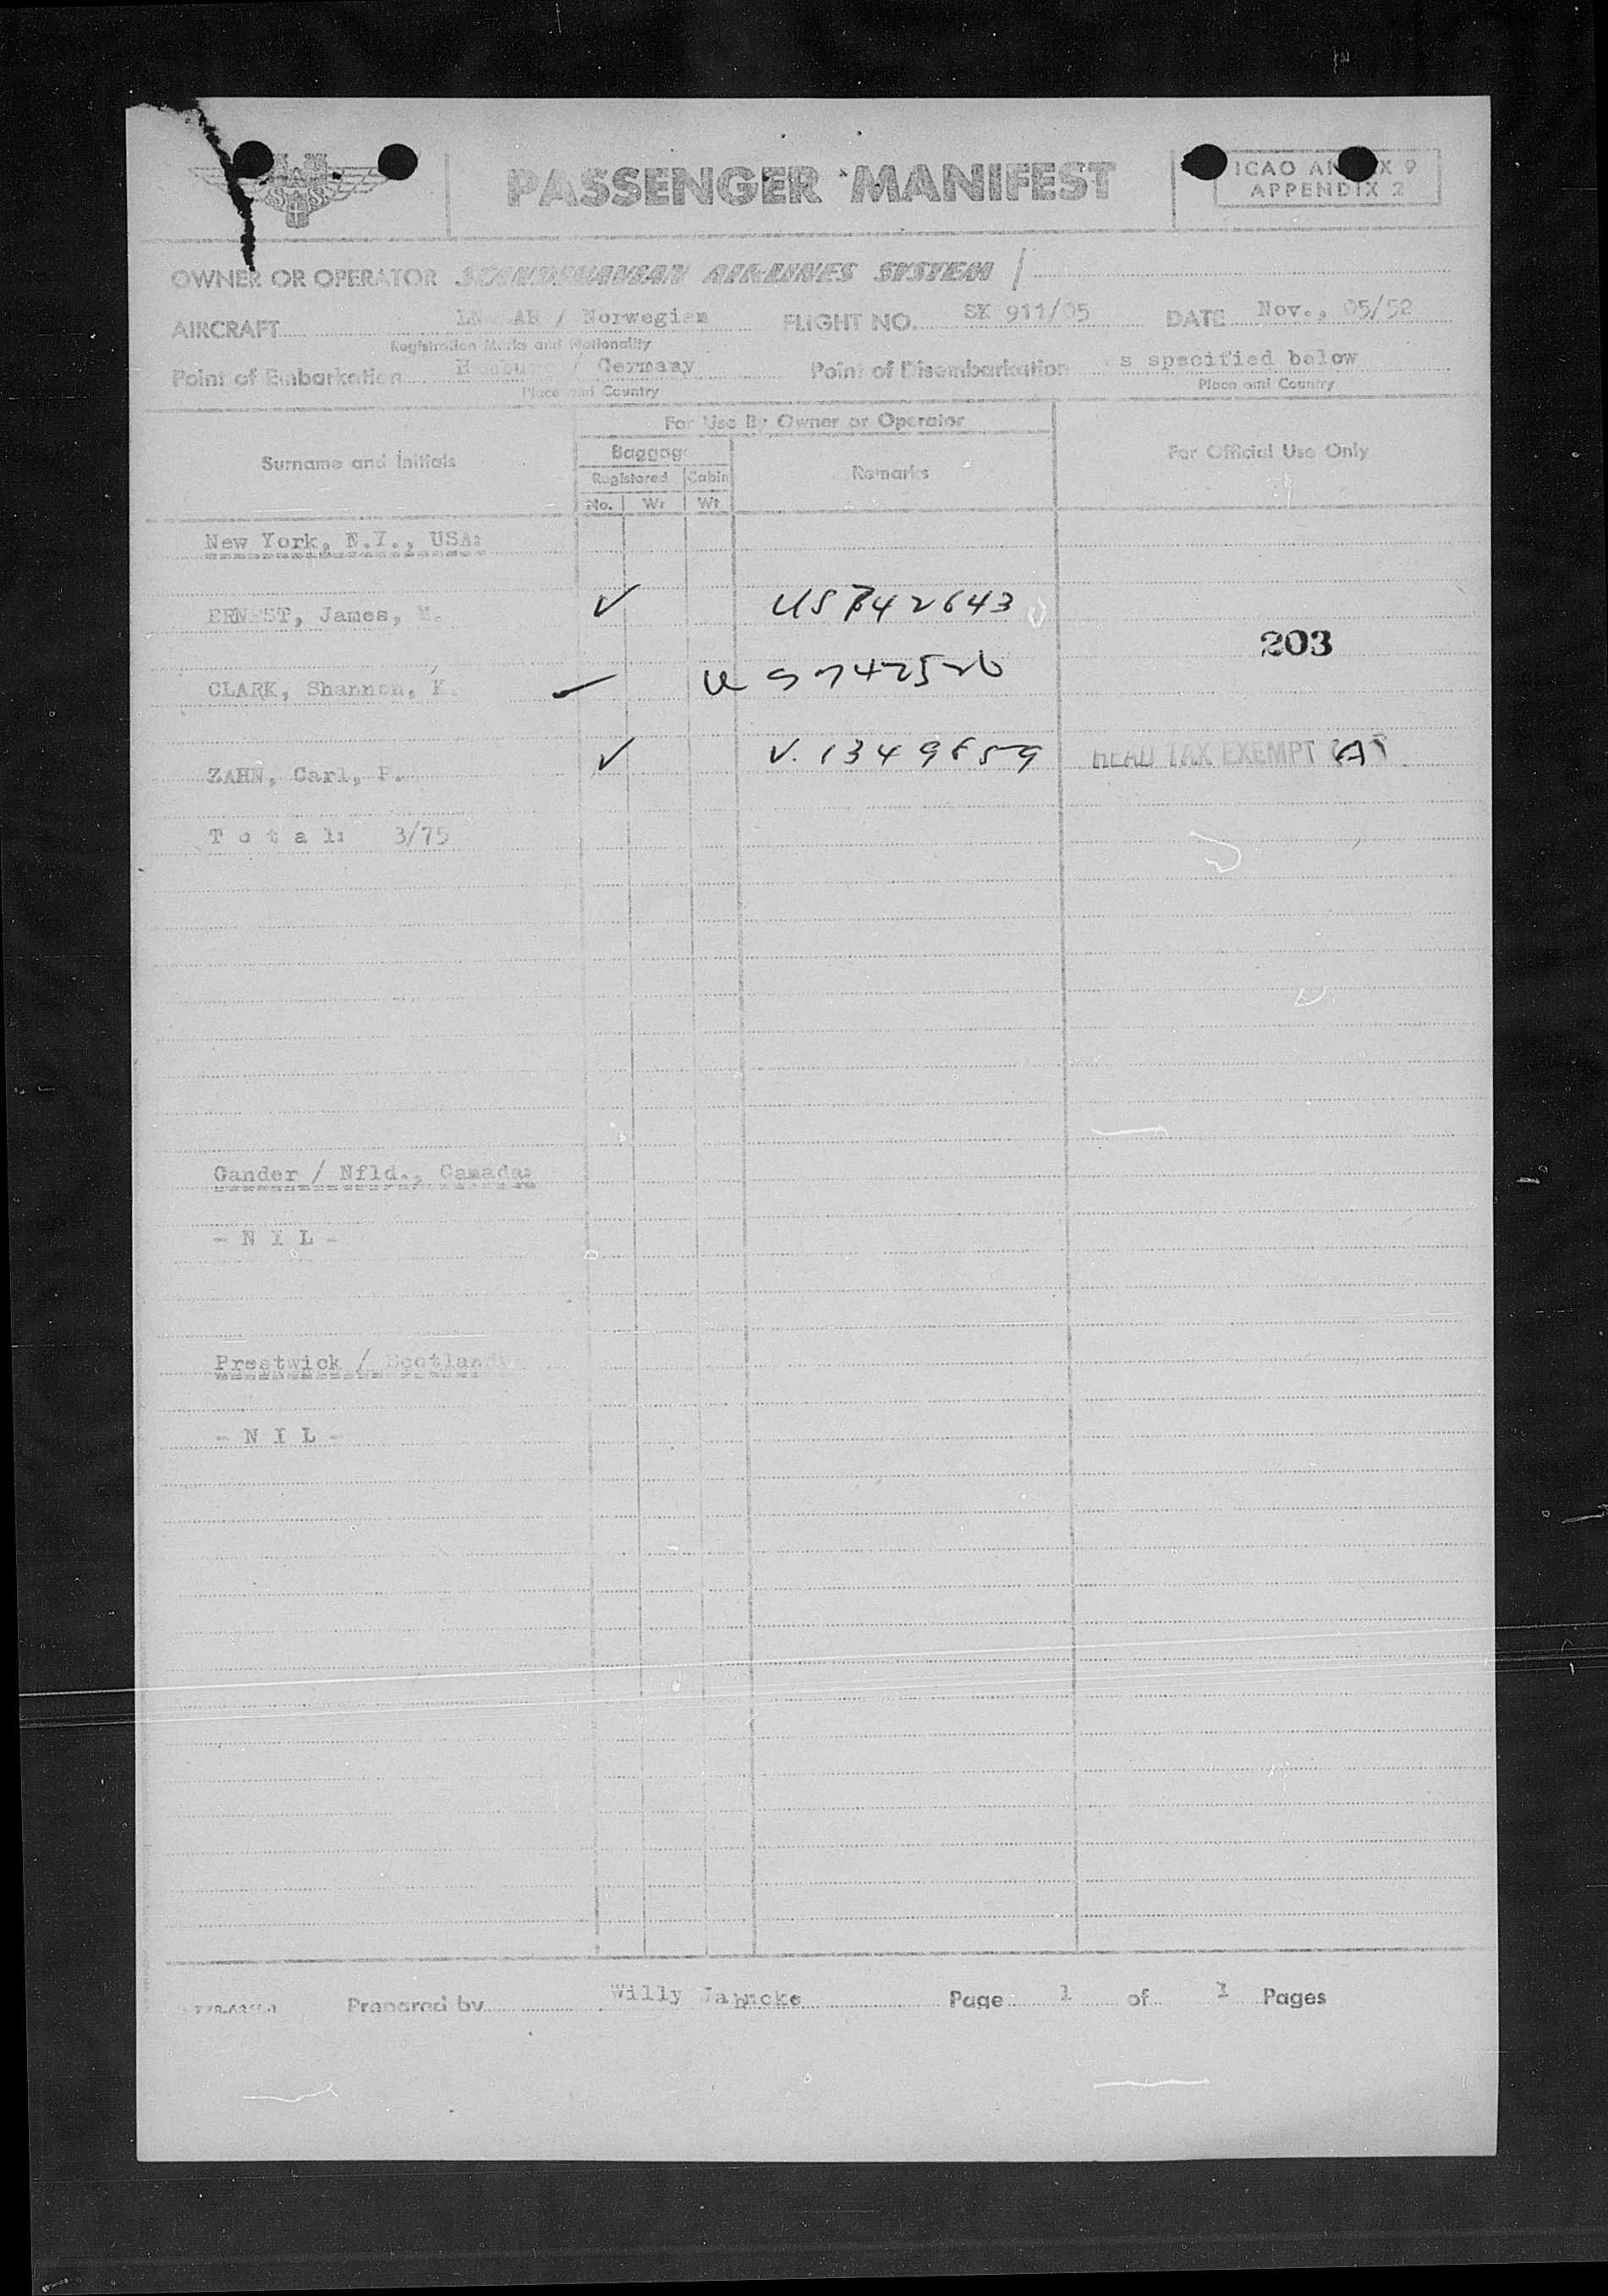 SAS
PASSENGER MANIFEST
ICAO ANNEX 9
APPENDIX 2
OWNER OR OPERATOR SCANDINAVIAN AIRLINES SYSTEM /
AIRCRAFT / Norwegian FLIGHT NO. SK 911/05 DATE Nov., 05/52
Registration Marks and Nationality
Point of Embarkation Hamburg / Germany Point of Disembarkation as specified below
Place and Country Place and Country
For Use By Owner or Operator
Surname and Initials Baggage Remarks For Official Use Only
Registered Cabin
No. Wt Wt
New York, N.Y., USA:
ERNEST, James, M. ✓ US 742643
203
CLARK, Shannon, K. US 742526
ZAHN, Carl, P. ✓ V. 1349859 HEAD TAX EXEMPT
T o t a l: 3/75
Gander / Nfld., Canada:
- N I L -
Prestwick / Scotland:
- N I L -
Prepared by Willy Page 1 of 1 Pages